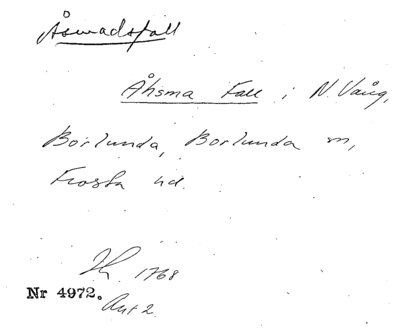 Åsmadsfall
Åhsma Fall i N. Vång,
Borlunda, Borlunda sn,
Frosta hd.
1768
Nr 4972.
Akt 2.